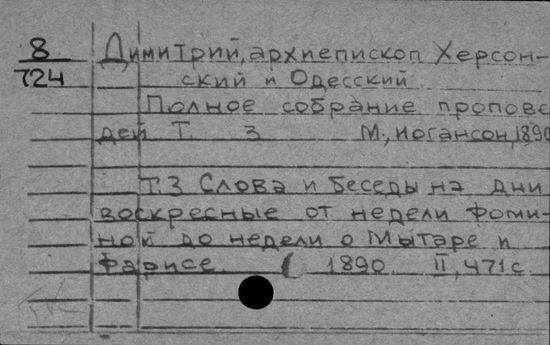 8
724
Димитрий, архиепископ Херсон-
ский и Одесский
Полное собрание пропове
дей Т. 3 М., Иогансон, 1890
Т.3 Слова и беседы на дни
воскресные от недели Фоми-
ной до недели о Мытаре и
Фарисе. 1890 II, 471 с.